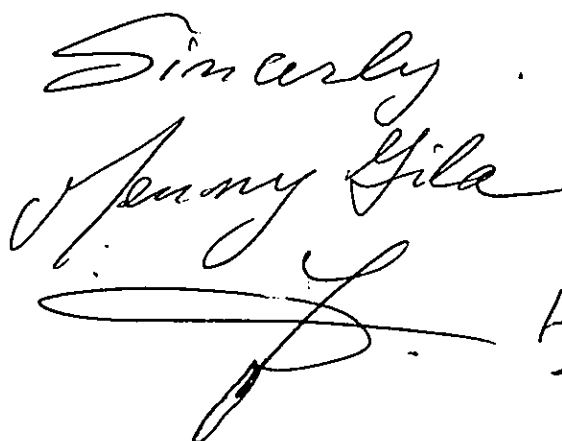 Sincerly.
Menny Gila